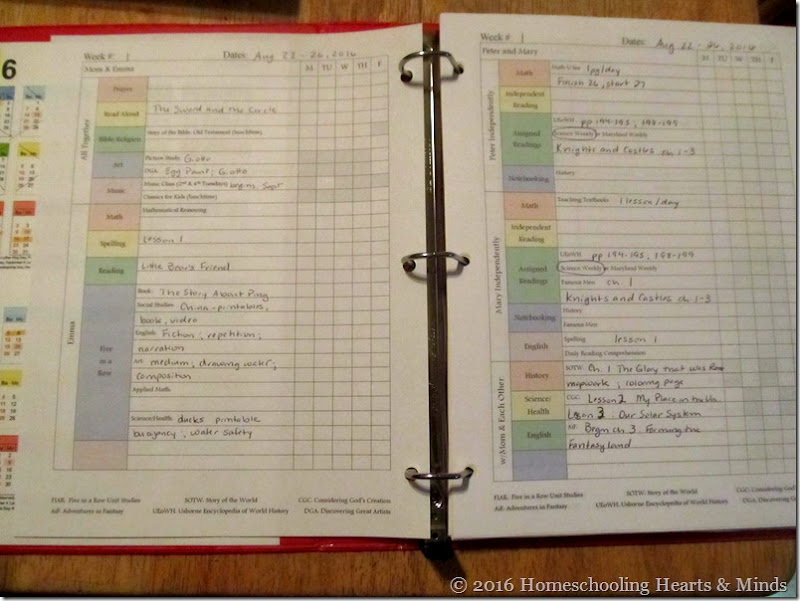 6
Week # 1
Dates: Aug 22-26, 2016
Mom & Emma
M TU W TH F
All Together
Prayer
Read Aloud
The Sword and the Circle
Bible/Religion
Story of the Bible: Old Testament (lunchtime)
Art
Picture Study: Giotto
DGA: Egg Paint; Giotto
Music
Music Class (2nd & 4th Tuesdays) begins Sept
Classics for Kids (lunchtime)
Emma
Math
Mathematical Reasoning
Spelling
Lesson 1
Reading
Little Bear's Friend
Five in a Row
Book: The Story About Ping
Social Studies: China - printables,
book, video
English: Fiction, repetition,
narration
Art: medium, drawing water,
composition
Applied Math:
Science/Health: ducks printable
buoyancy, water safety
FIAR: Five in a Row Unit Studies
SOTW: Story of the World
CGC: Considering God's Creation
AiF: Adventures in Fantasy
UEoWH: Usborne Encyclopedia of World History
DGA: Discovering Great Artists
Week # 1
Dates: Aug 22-26, 2016
Peter and Mary
M TU W TH F
Peter Independently
Math
Math-U-See 1pg/day
Finish 26, start 27
Independent
Reading
Assigned
Readings
UEoWH pp 194-195; 198-199
Science Weekly or Maryland Weekly
Knights and Castles ch 1-3
Notebooking
History
Mary Independently
Math
Teaching Textbooks 1 lesson/day
Independent
Reading
Assigned
Readings
UEoWH pp 194-195; 198-199
Science Weekly or Maryland Weekly
Famous Men ch 1
Knights and Castles ch 1-3
Notebooking
History
Famous Men
English
Spelling lesson 1
Daily Reading Comprehension
w/Mom & Each Other
History
SOTW: Ch. 1 The Glory that was Rome
mapwork, coloring page
Science/
Health
CGC: Lesson 2 My Place in
Lesson 3 Our Solar System
English
AiF: Begin ch 3. Forming the
Fantasyland
FIAR: Five in a Row Unit Studies
SOTW: Story of the World
CGC: Considering God's Creation
AiF: Adventures in Fantasy
UEoWH: Usborne Encyclopedia of World History
DGA: Discovering Great Artists
© 2016 Homeschooling Hearts & Minds